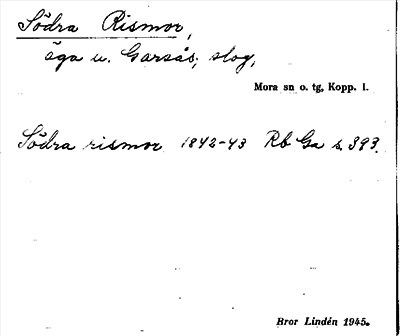 Södra Rismor,
äga u. Garsås, slog,
Mora sn o. tg, Kopp. l.
Södra rismor 1842-43 Rb Ga s. 393.
Bror Lindén 1945.